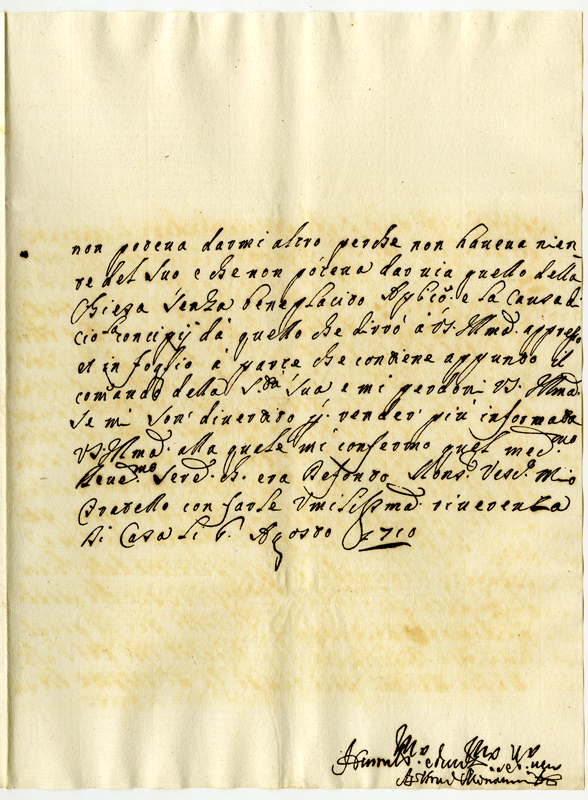 non poteva darmi altro perche non haveva nien=
te del suo e che non poteva dar via quello della
Chiesa senza beneplacido Ap.co e la causa di
ciò la concipij da quello che dirrò à V.S. Ill.ma appresso
et in foglio à parte che contiene appunto il
comando della S.tà Sua e mi perdoni V.S. Ill.ma
se mi son divertito p. render più informata
V.S. Ill.ma alla quale mi confermo quel med.mo
Reve.mo Serv. ch. era Defonto Mons. Vesc. Mio
Fratello con farle Umilissima riverenza
Di Casa li 6. Agosto 1710